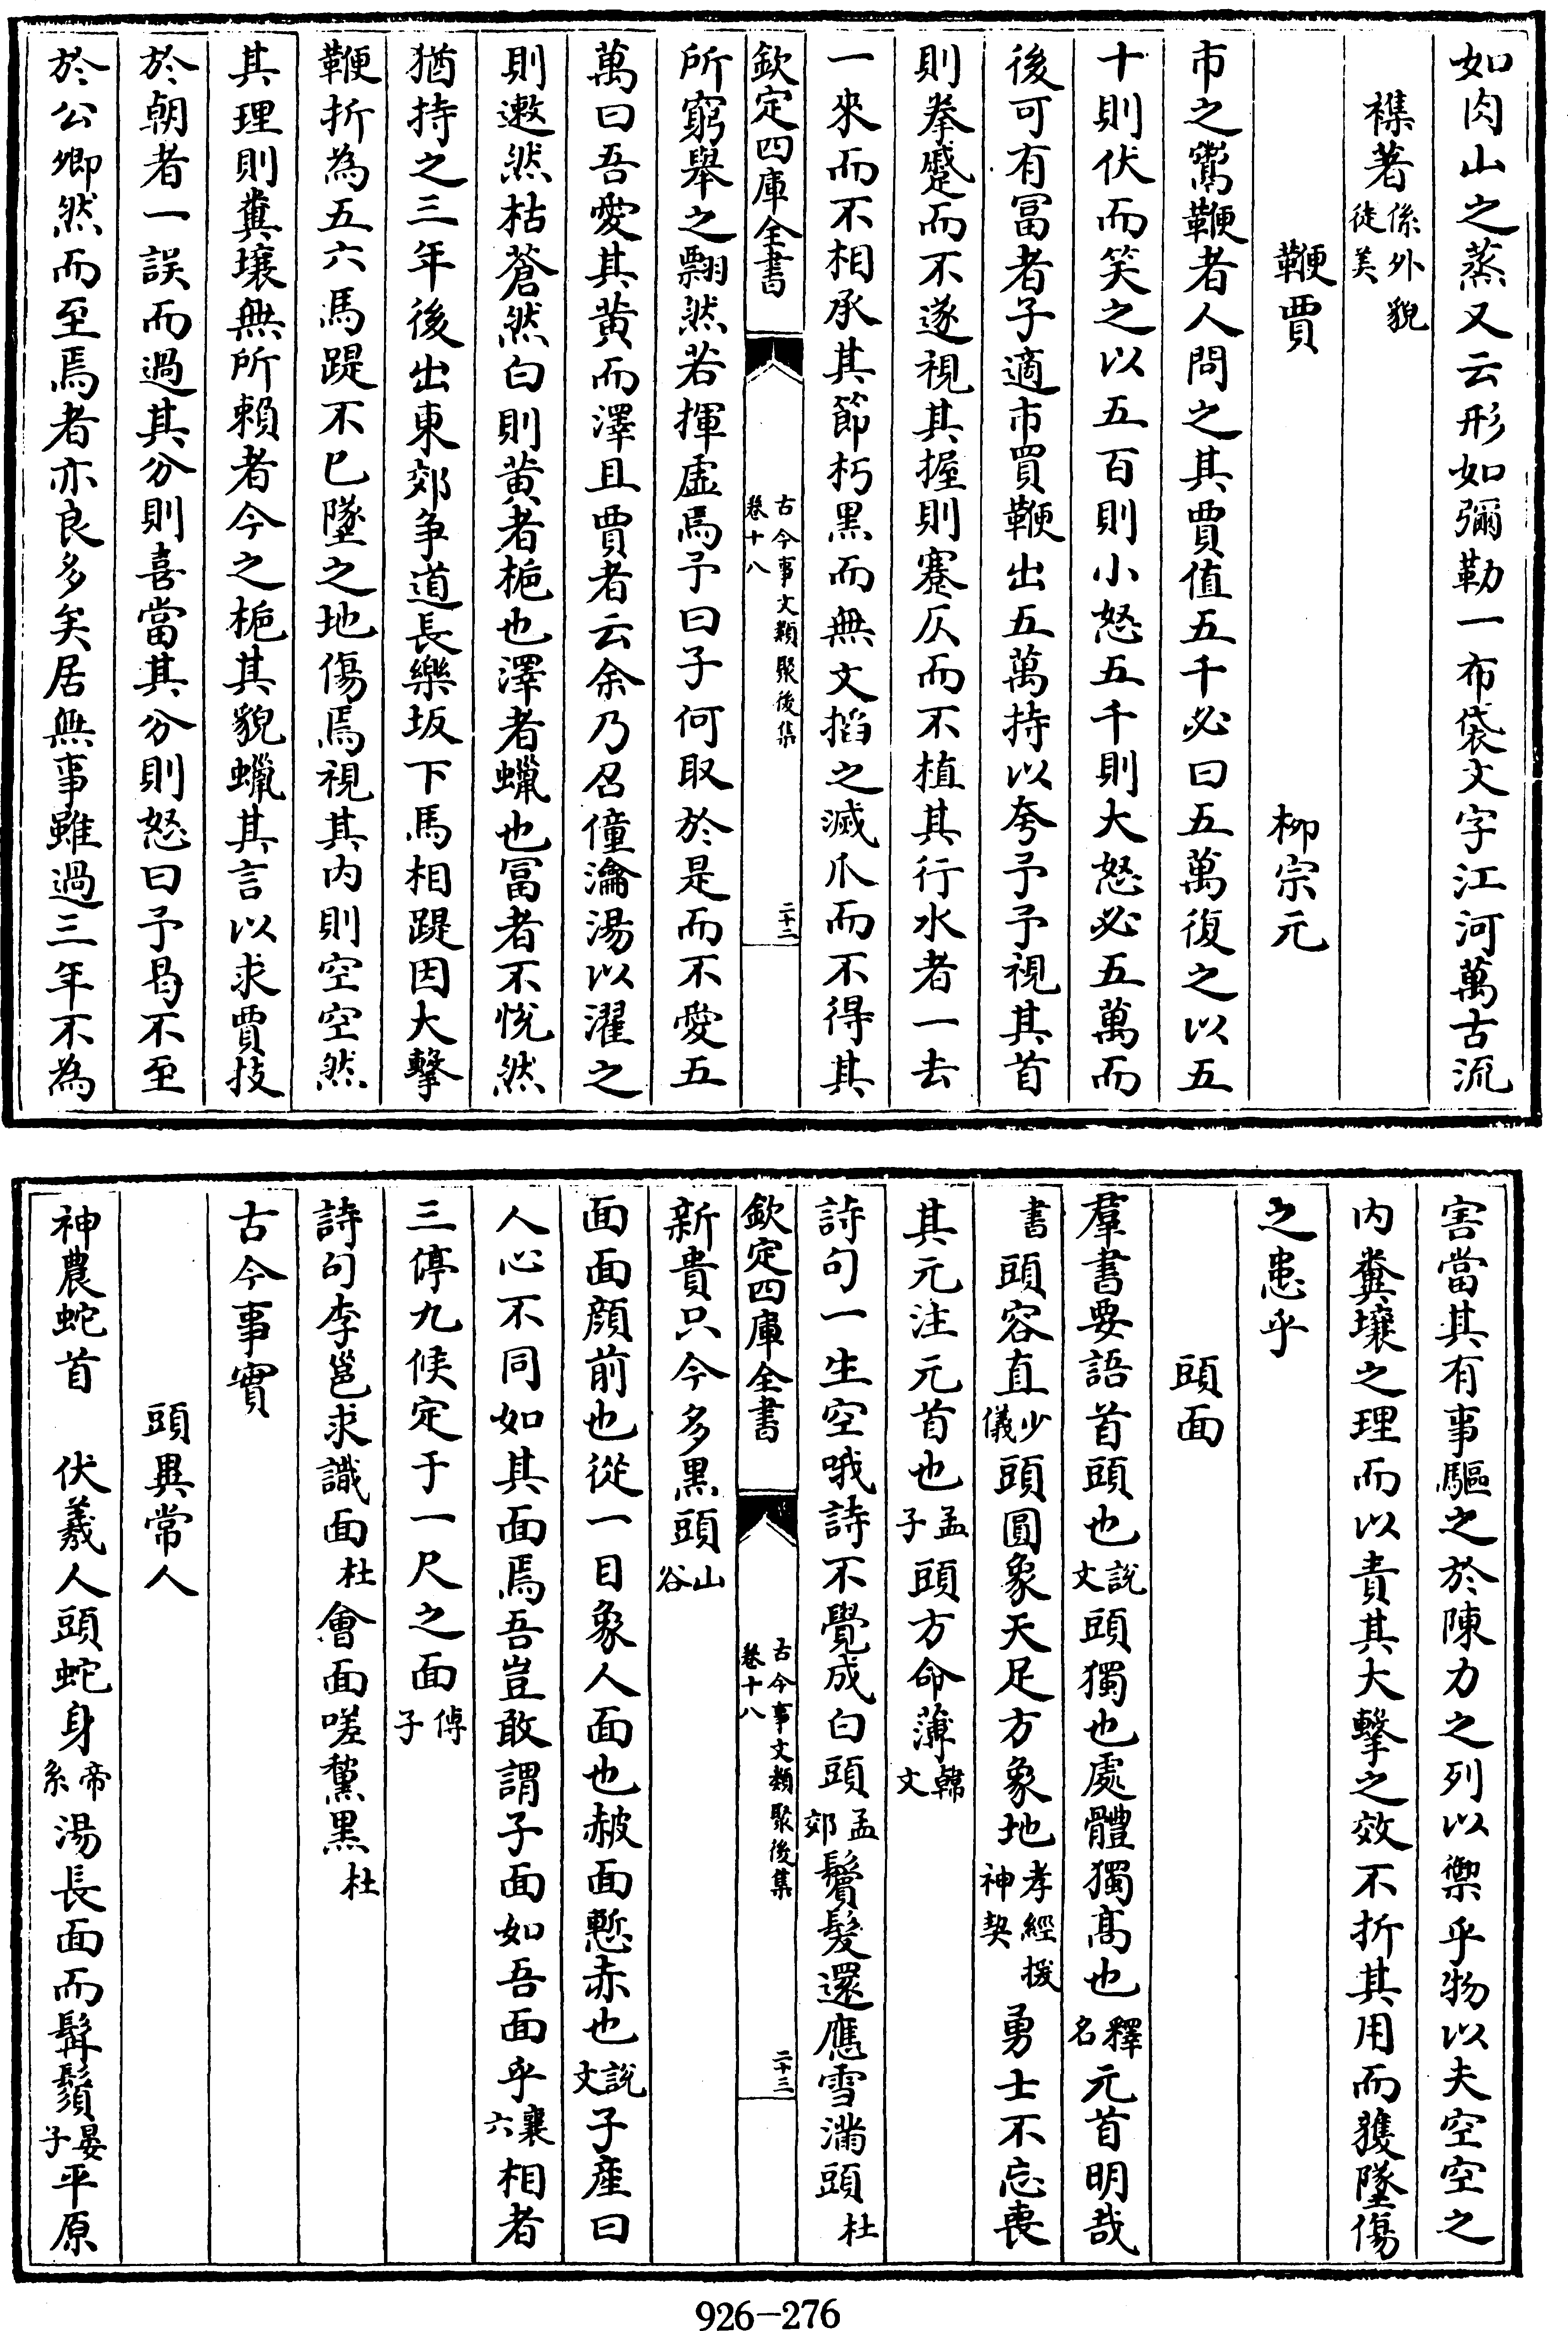 如肉山之蒸又云形如彌勒一布袋文字江河萬古流
襍著係外貌徒美
鞭賈　柳宗元
市之鬻鞭者人問之其賈值五千必曰五萬復之以五
十則伏而笑之以五百則小怒五千則大怒必五萬而
後可有富者子適市買鞭出五萬持以夸予予視其首
則拳蹙而不遂視其握則蹇仄而不植其行水者一去
一來而不相承其節朽黒而無文掐之滅爪而不得其
欽定四庫全書　古今事文類聚後集卷十八　二十二
所窮舉之翲然若揮虛焉予曰子何取於是而不愛五
萬曰吾愛其黄而澤且賈者云余乃召僮瀹湯以濯之
則遬然枯蒼然白則黄者梔也澤者蠟也冨者不悅然
猶持之三年後出東郊争道長樂坂下馬相踶因大擊
鞭折為五六馬踶不已墜之地傷焉視其内則空空然
其理則糞壤無所賴者今之梔其貌蠟其言以求賈技
於朝者一誤而過其分則喜當其分則怒曰予曷不至
於公卿然而至焉者亦良多矣居無事雖過三年不為
害當其有事驅之於陳力之列以禦乎物以夫空空之
内糞壤之理而以責其大擊之效不折其用而獲墜傷
之患乎
頭面
羣書要語首頭也說文頭獨也處體獨髙也釋名元首明哉
書頭容直少儀頭圓象天足方象地孝經援神契勇士不忘喪
其元注元首也孟子頭方命薄韓文
詩句一生空哦詩不覺成白頭孟郊鬢髮還應雪滿頭杜
欽定四庫全書　古今事文類聚後集卷十八　二十三
新貴只今多黒頭山谷
面面顔前也從一目象人面也赧面慙赤也說文子產曰
人心不同如其面焉吾豈敢謂子面如吾面乎襄六相者
三停九候定于一尺之面傅子
詩句李邕求識面杜會面嗟黧黒杜
古今事實
頭異常人
神農蛇首　伏羲人頭蛇身帝系湯長面而髯鬚晏子平原
926-276